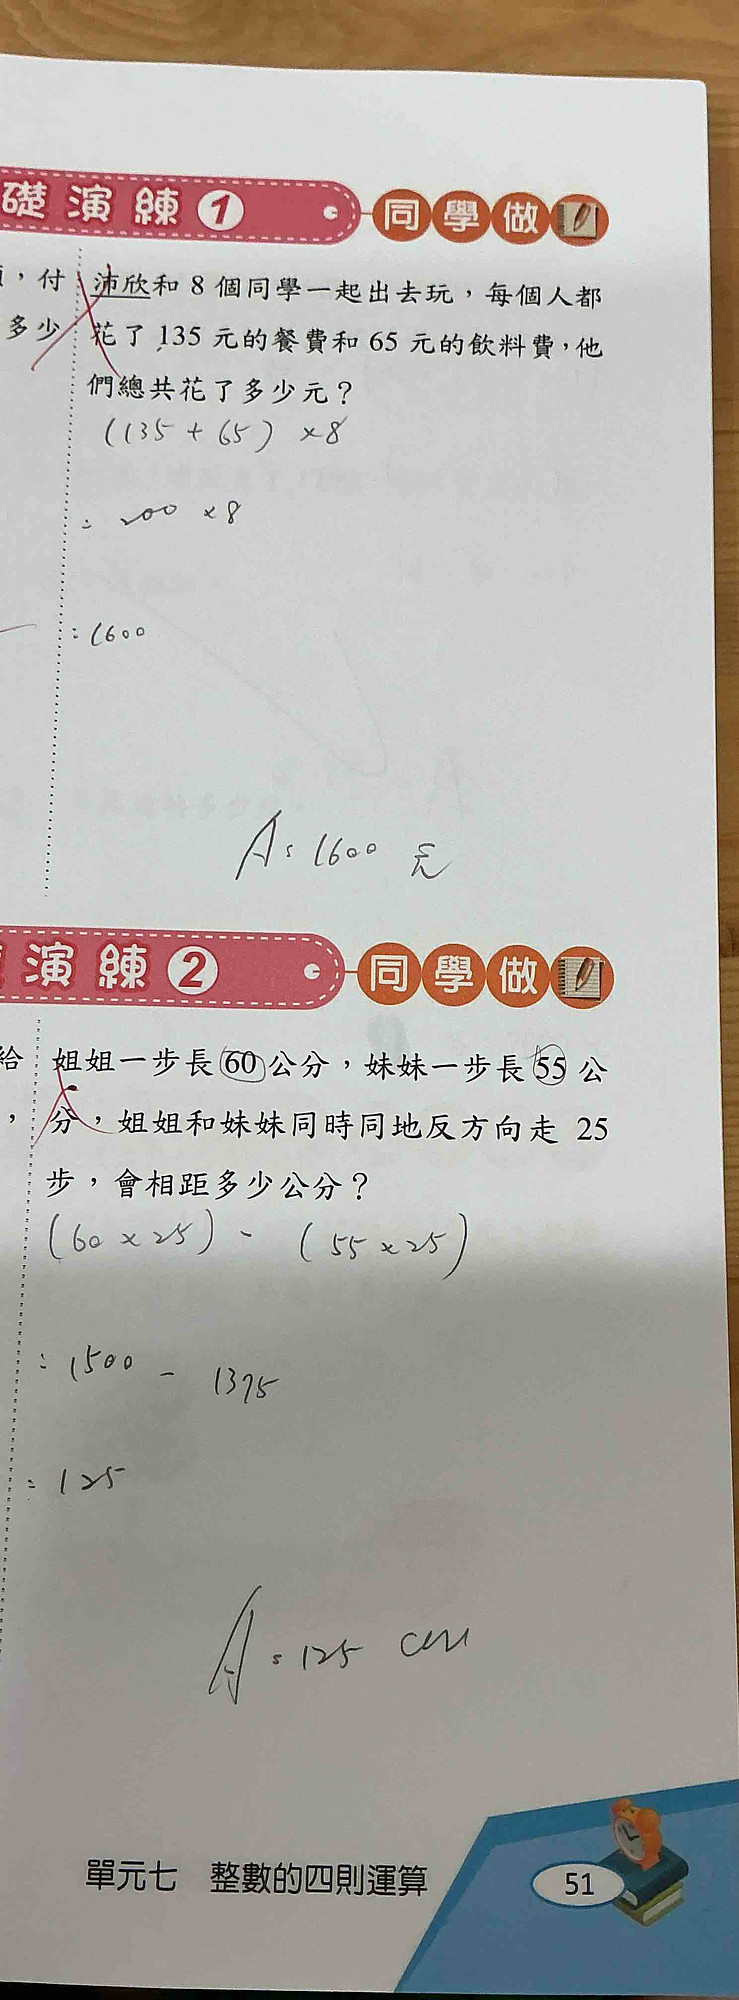 礎演練1 同學做
，付
多少
沛欣和 8 個同學一起出去玩，每個人都
花了 135 元的餐費和 65 元的飲料費，他
們總共花了多少元？
(135 + 65) ×8
= 200 ×8
= 1600
A: 1600 元
演練2 同學做
給
，
姐姐一步長 60 公分，妹妹一步長 55 公
分，姐姐和妹妹同時同地反方向走 25
步，會相距多少公分？
(60 × 25) - (55 × 25)
= 1500 - 1375
= 125
A: 125 cm
單元七 整數的四則運算 51